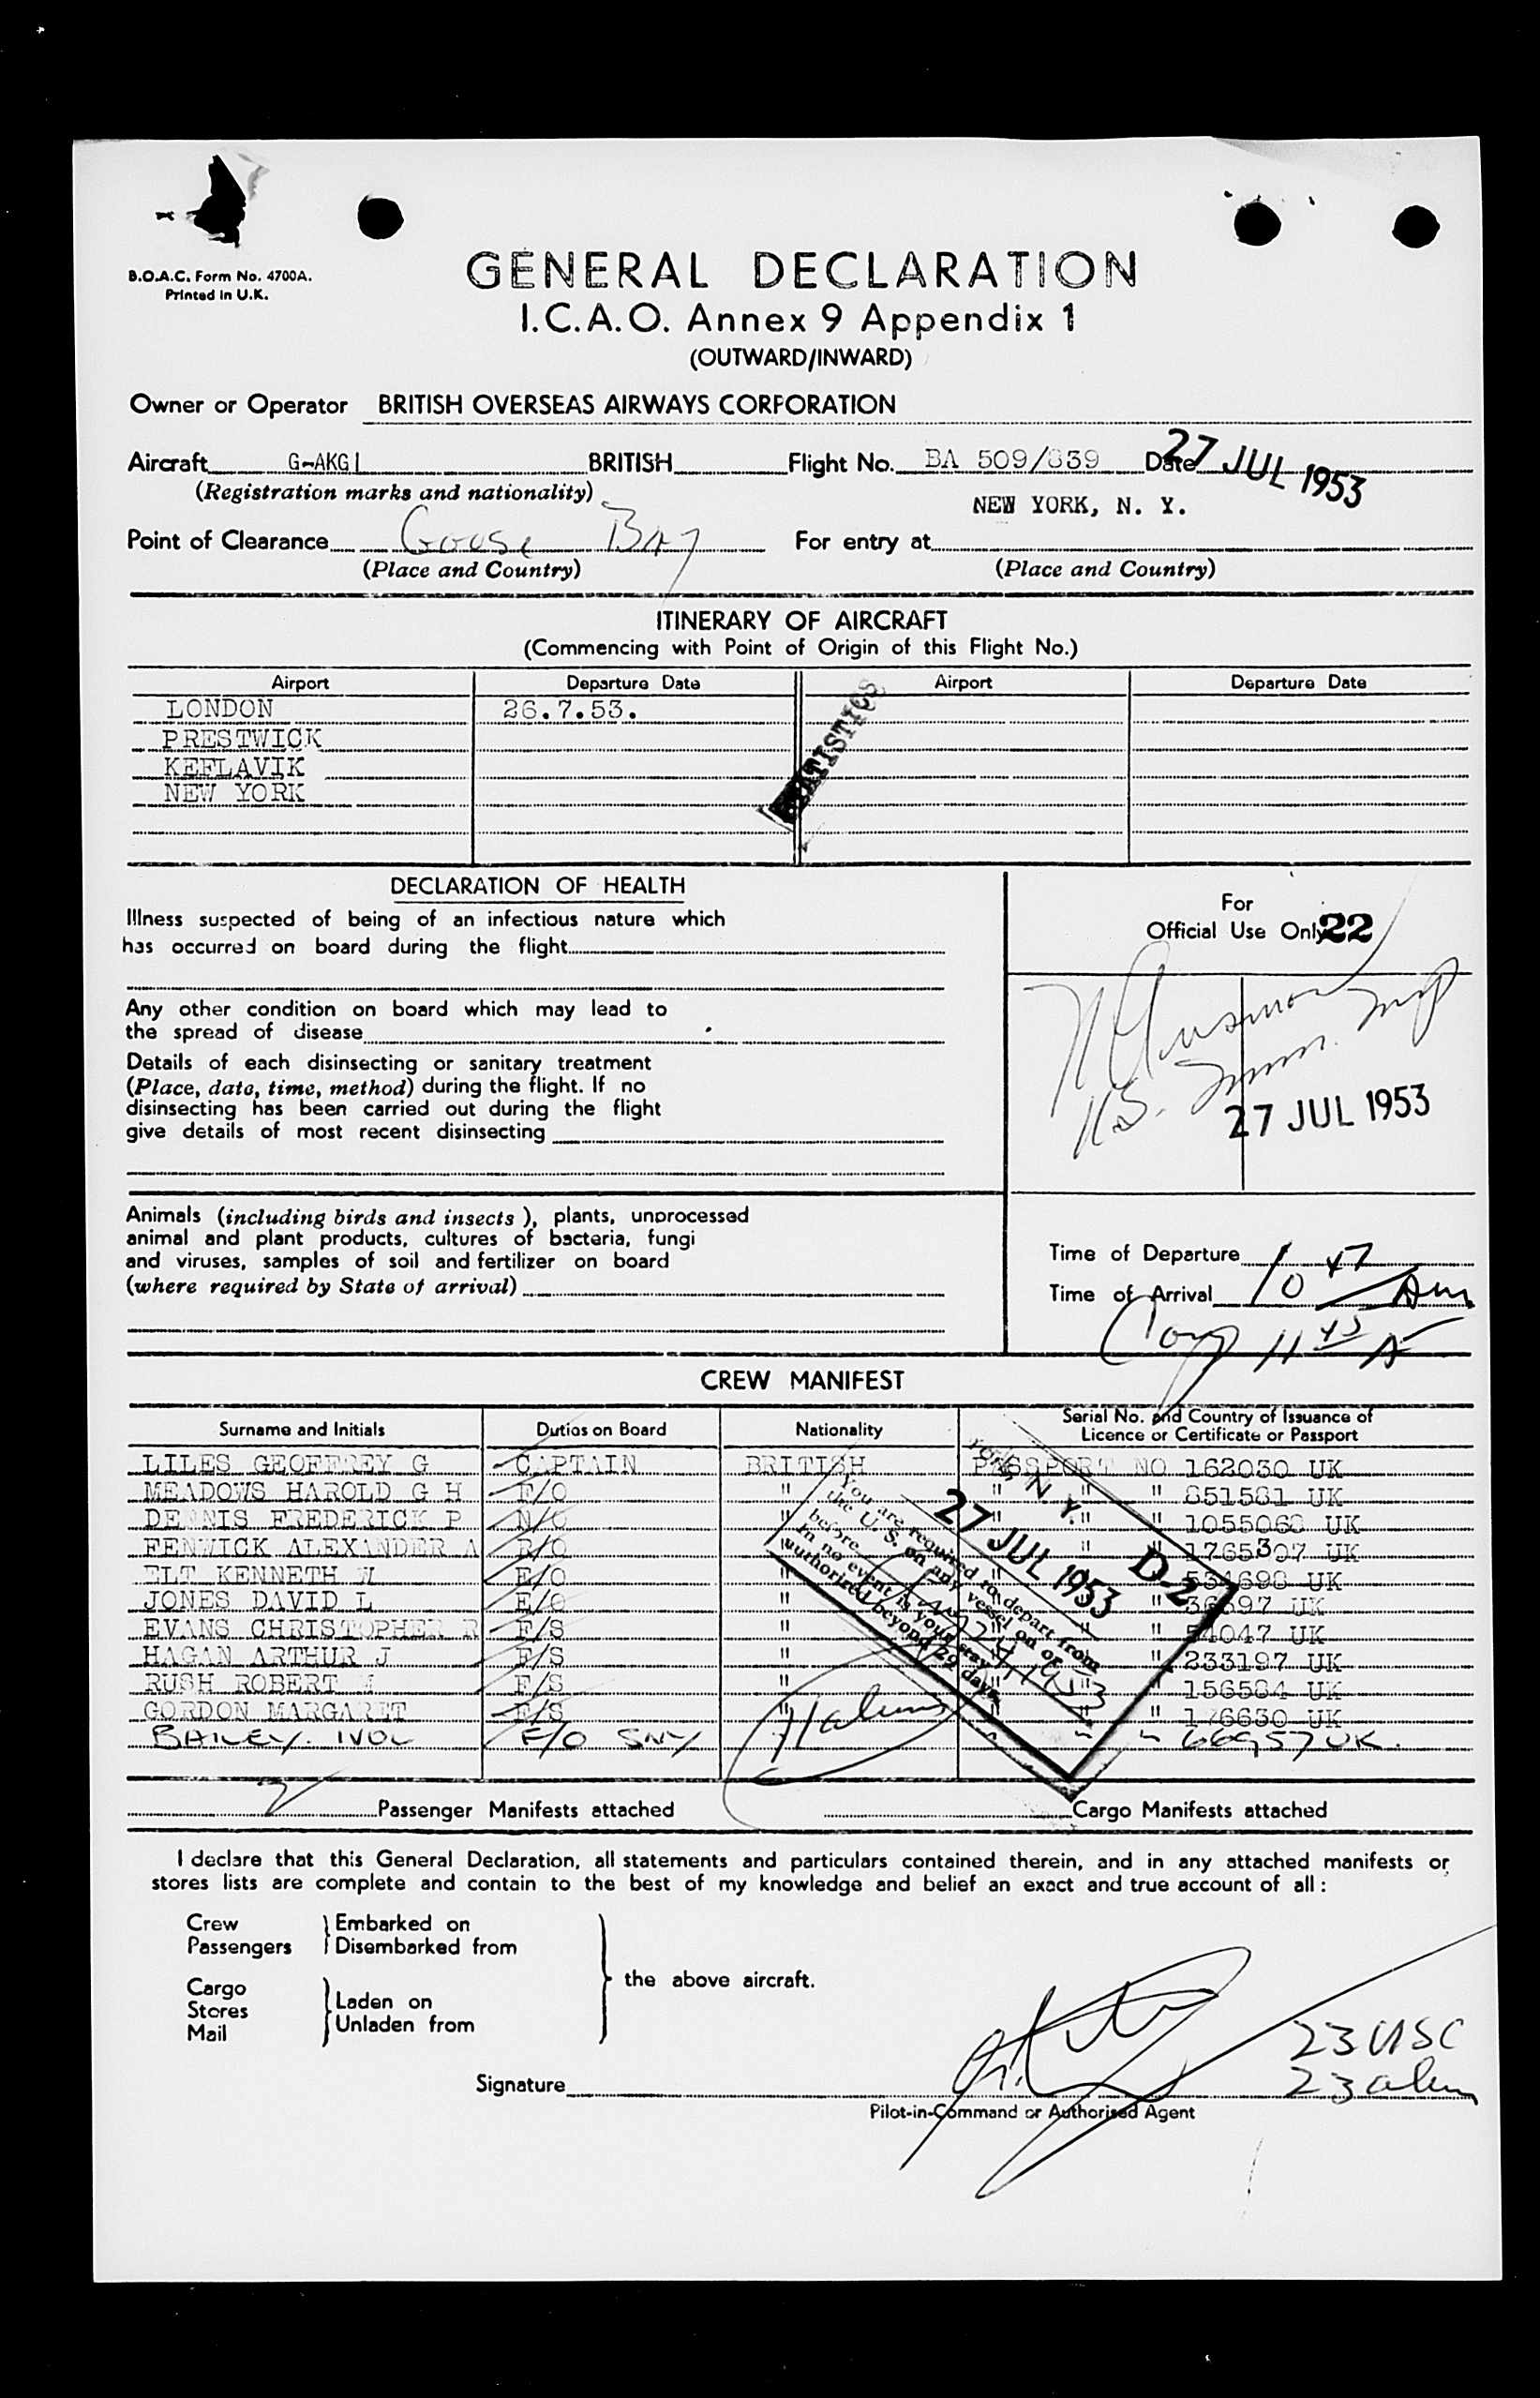 B.O.A.C. Form No. 4700A.
Printed in U.K.
GENERAL DECLARATION
I.C.A.O. Annex 9 Appendix 1
(OUTWARD/INWARD)
Owner or Operator BRITISH OVERSEAS AIRWAYS CORPORATION
Aircraft G-AKGI BRITISH Flight No. BA 509/839 Date 27 JUL 1953
(Registration marks and nationality)
NEW YORK, N. Y.
Point of Clearance Goose Bay For entry at
(Place and Country) (Place and Country)
ITINERARY OF AIRCRAFT
(Commencing with Point of Origin of this Flight No.)
Airport Departure Date Airport Departure Date
LONDON 26.7.53.
PRESTWICK
KEFLAVIK
NEW YORK
STATISTICS
DECLARATION OF HEALTH
Illness suspected of being of an infectious nature which
has occurred on board during the flight
Any other condition on board which may lead to
the spread of disease
Details of each disinsecting or sanitary treatment
(Place, date, time, method) during the flight. If no
disinsecting has been carried out during the flight
give details of most recent disinsecting
For
Official Use Only 22
Imm. Insp
27 JUL 1953
Animals (including birds and insects), plants, unprocessed
animal and plant products, cultures of bacteria, fungi
and viruses, samples of soil and fertilizer on board
(where required by State of arrival)
Time of Departure
Time of Arrival 10 47 Am
11 45 A
CREW MANIFEST
Surname and Initials Duties on Board Nationality Serial No. and Country of Issuance of
Licence or Certificate or Passport
LILES GEOFFREY G CAPTAIN BRITISH PASSPORT NO 162030 UK
MEADOWS HAROLD G H F/O " " " " 851581 UK
DENNIS FREDERICK P N/O " " " 1055068 UK
FENWICK ALEXANDER A R/O " " " 1765307 UK
ELT KENNETH W E/O " " 534698 UK
JONES DAVID L E/O " " 36397 UK
EVANS CHRISTOPHER R F/S " " 54047 UK
HAGAN ARTHUR J F/S " " 233197 UK
RUSH ROBERT F/S " " " 156584 UK
GORDON MARGARET F/S " " " 176630 UK
BAILEY. IVOL F/O SNY " " 66957 UK.
N. Y.
27 JUL 1953 D-2
You are required to depart from
the U. S. on any vessel on or
before
In no event is your stay
authorized beyond 29 days.
2 Passenger Manifests attached Cargo Manifests attached
I declare that this General Declaration, all statements and particulars contained therein, and in any attached manifests or
stores lists are complete and contain to the best of my knowledge and belief an exact and true account of all :
Crew Embarked on
Passengers Disembarked from
the above aircraft.
Cargo
Stores Laden on
Mail Unladen from
23 USC
23 alien
Signature
Pilot-in-Command or Authorised Agent